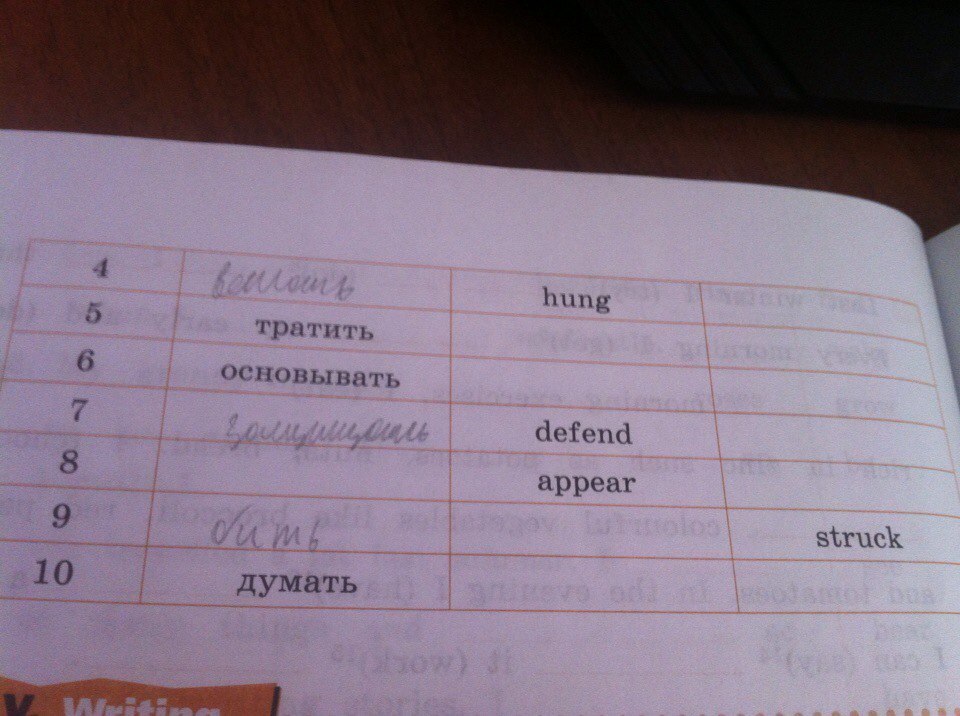 4 вешать hung
5 тратить
6 основывать
7 защищать defend
8 appear
9 бить struck
10 думать
V. Writing